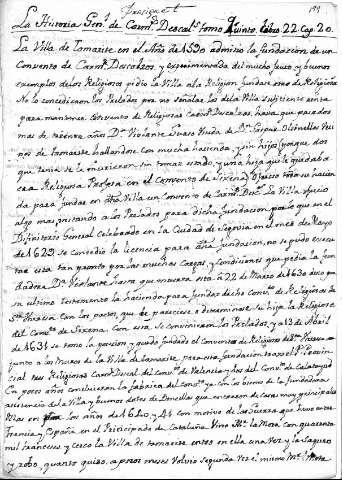 Prosigue et
La Historia Genl. de Carms. Descals. tomo Quinto libro 22. Cap. 20.
La Villa de Tamarite en el Año de 1590 admitio la fundacion de un
Convento de Carms. Descalzos, y experimentada del mucho fruto y buenos
exemplos de los Religiosos pidio la Villa a la Religion fundar otro de Religiosas
No lo concedieron los Prelados por no señalar los de la Villa suficiente renta
para mantener Convento de Religiosas hasta que pasados
mas de treinta años Da. Violante Suarez Viuda de Dn. Gaspar Veci-
nos de tamarite hallandose con mucha hacienda y sin hijos porque dos
que tenia se le murieron sin tomar estado, y una hija que le quedaba
era Religiosa Profesa en el Convento de Sixena. Ofrecio toda su hacien-
da para fundar en dha. Villa un Convento de Carms. Desc. La Villa ofrecio
algo mas instando a los Prelados para dicha fundacion, por lo que en el
Difinitorio General celebrado en la Ciudad de Segovia en once de Mayo
de 1629 se concedio la licencia para dha. fundacion, no se pudo efectuar
esta tan pronto por las muchas cargas, y condiciones que pedia la fun-
dadora Da. Violante hasta que muerta esta a 22 de Marzo de 1630 dexo por
su ultimo testamento la hacienda para fundar dicho Convto. de Religiosas de
con los pactos que le pareciese a su hija la Religiosa
del Convto. de Sixena. Con esta se convinieron los Prelados, y a 13 de Abril
de 1631 se tomo la posesion y quedo fundado el Convento de Religiosas
junto a los Muros de la Villa de tamarite para esta fundacion traxo el Provin-
cial tres Religiosas Carms. Descal. del Convto. de Valencia y dos del Convto. de Calatayud
En pocos años concluieron la fabrica del convto. y con los bienes de la fundadora
asistencia de la Villa y buenos dotes de Doncellas que entraron de casas muy principales
en los años de 1640 y 41 con motivo de las Guerras que huvo entre
Francia y España en el Principado de Cataluña Vino Mr. la Mota con quatro
mil franceses y cerco la Villa de tamarite entro en ella una vez y la saqueo
y robo, quanto quiso, a pocos meses Volvio segunda vez el mismo Mr. la Mota